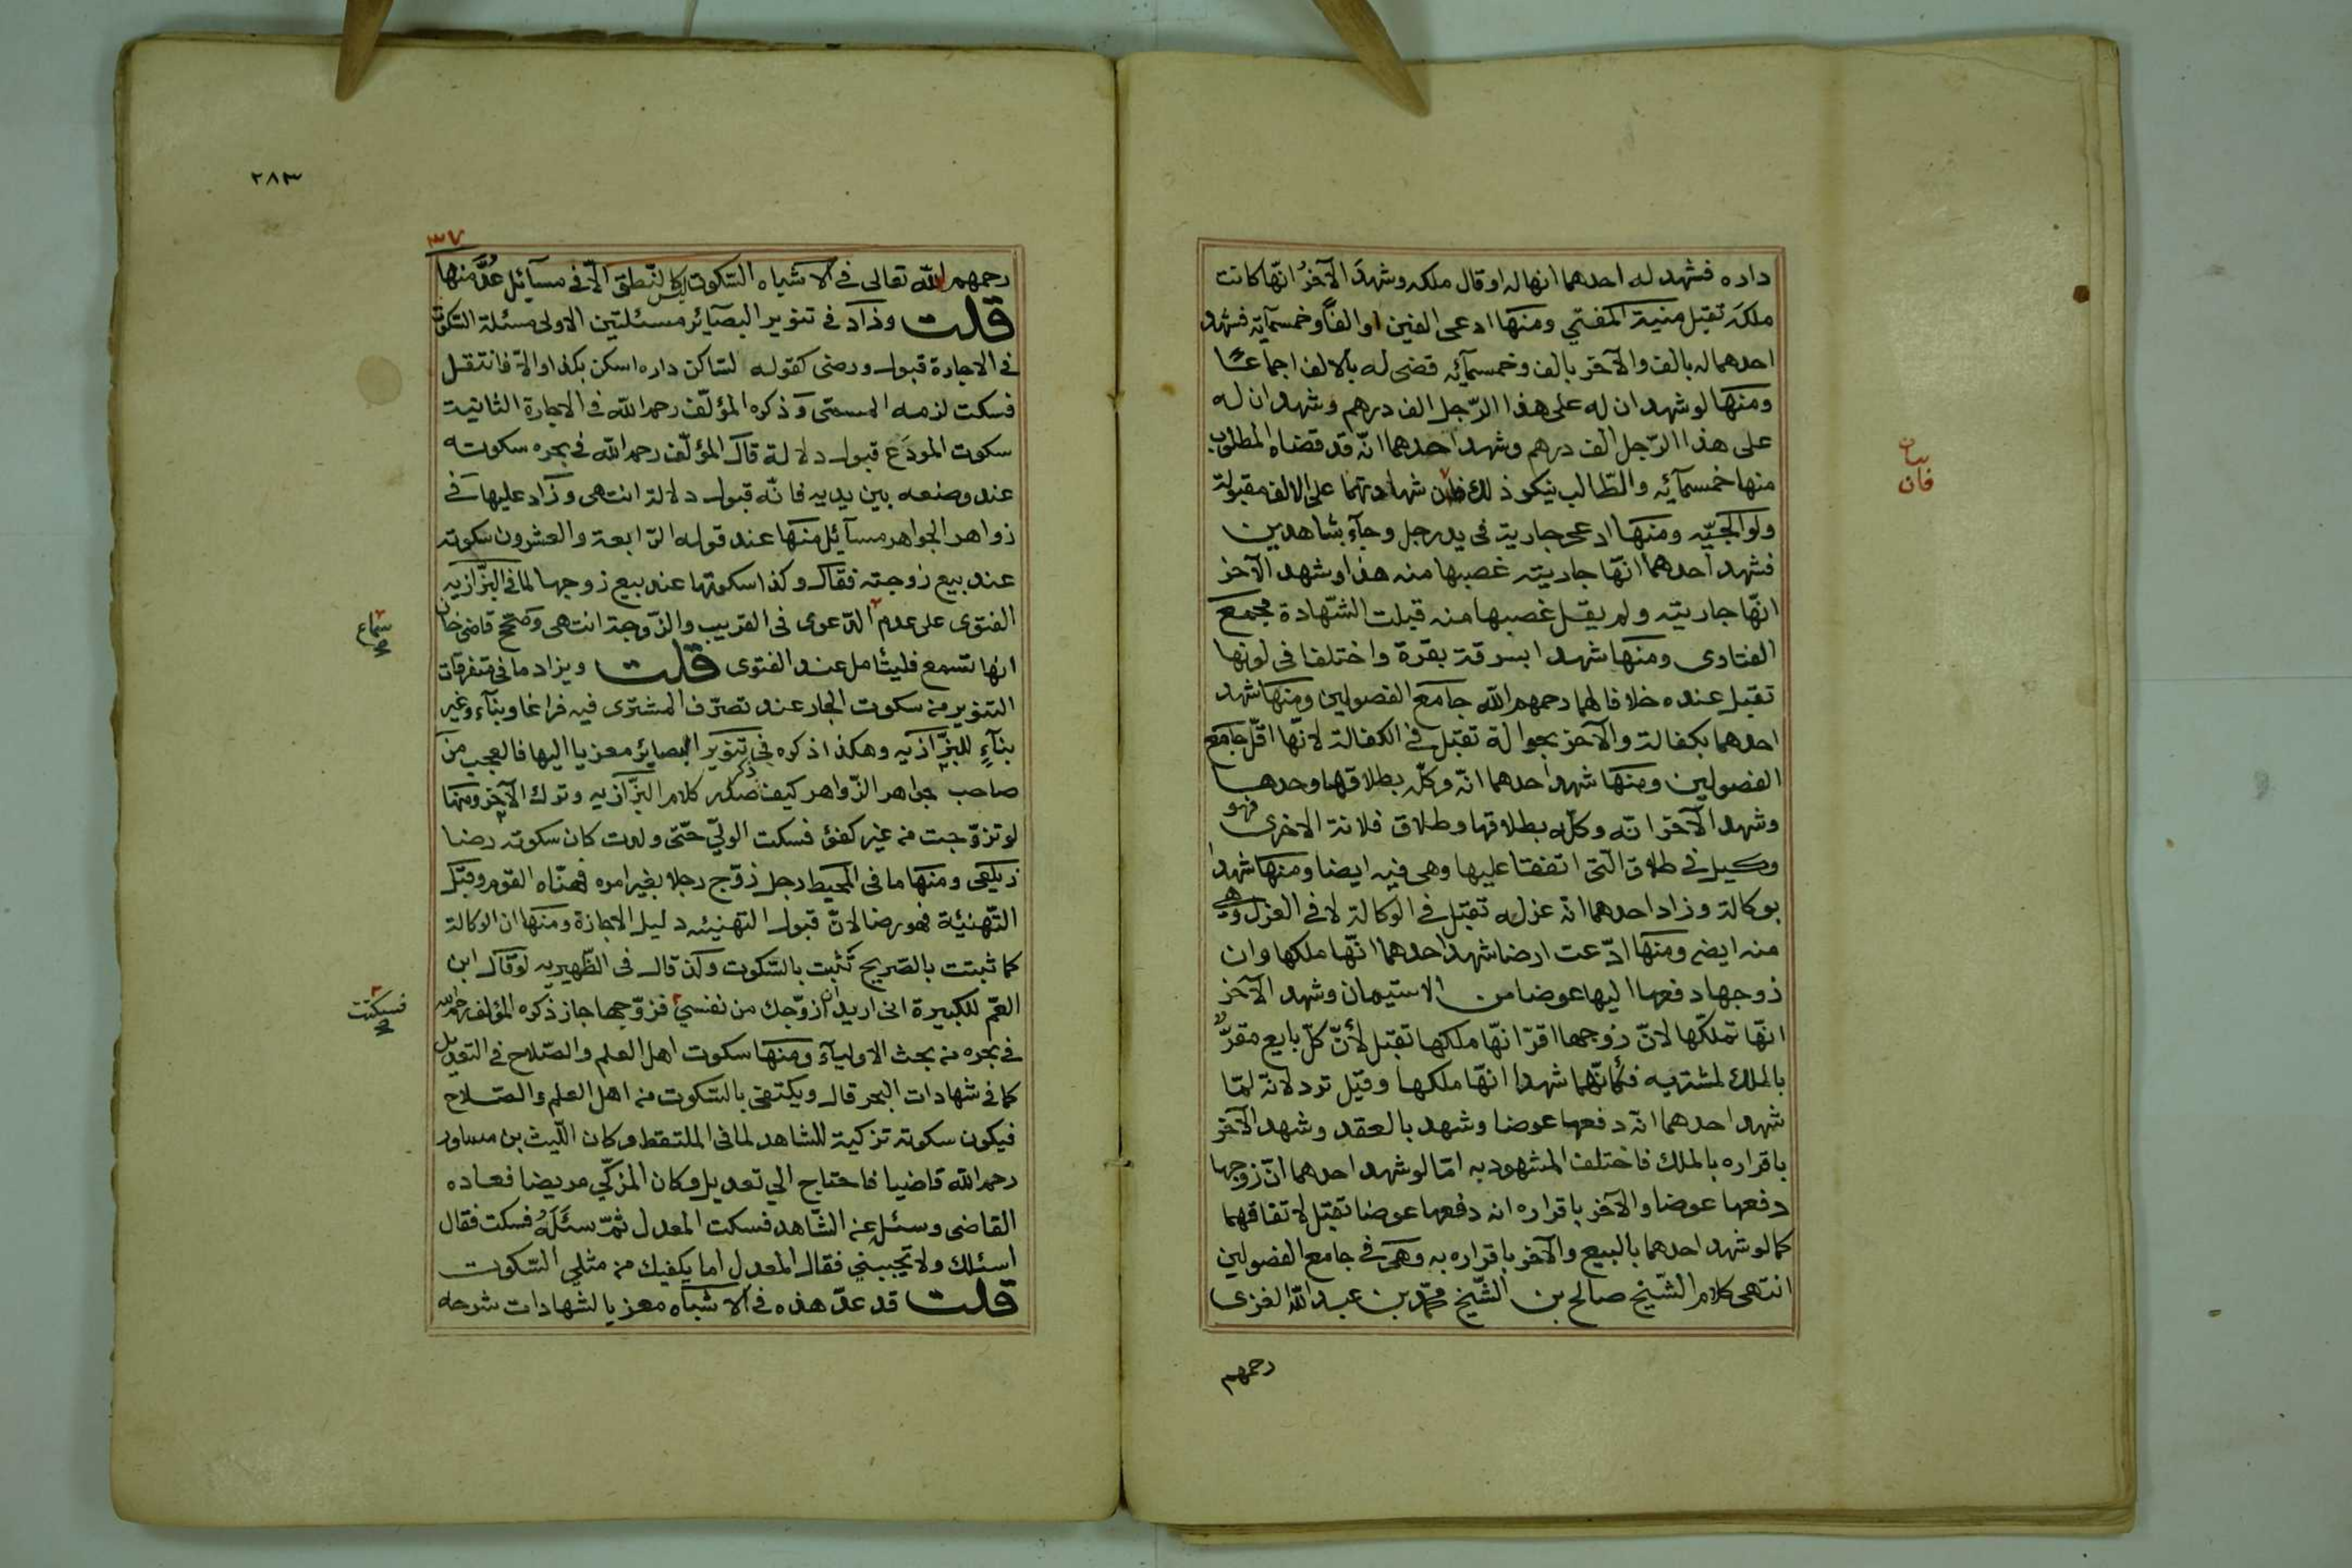 داره فشهد له احدهما انها له او قال ملكه وشهد الآخر انّها كانت
ملكه تقبل منية المفتي ومنها ادعى الفين او الفاً وخمسمآئة فشهد
احدهما له بالف والآخر بالف وخمسمآئه قضى له بالالف اجماعا
ومنها لو شهد ان له على هذا الرّجل الف درهم وشهد ان له
على هذا الرّجل الف درهم وشهد احدهما انّه قد قضاه المطلوب
منها خمسمآئه والطّالب ينكر ذلك شهادتهما على الالف مقبولة
ولوالجيّه ومنها ادعى جارية فى يد رجل وجآء بشاهدين
فشهد احدهما انّها جاريته غصبها منه هذا وشهد الآخر
انّها جاريته ولم يقل غصبها منه قبلت الشّهادة مجمع
الفتاوى ومنها شهدا بسرقة بقرة واختلفا فى لونها
تقبل عنده خلافا لهما رحمهم الله جامع الفصولين ومنها شهد
احدهما بكفالة والآخر بحوالة تقبل فى الكفالة لانّها اقلّ جامع
الفصولين ومنها شهد احدهما انّه وكّله بطلاقها وحدها
وشهد الآخر انّه وكّله بطلاقها وطلاق فلانة الاخرى فهو
وكيل فى طلاق الّتى اتفقا عليها وهى فيه ايضا ومنها شهدا
بوكالة وزاد احدهما انّه عزله تقبل فى الوكالة لا فى العزل وهى
منه ايضه ومنها ادّعت ارضا شهد احدهما انّها ملكها وان
زوجها دفعها اليها عوضا من الاستيمان وشهد الآخر
انّها تملكّها لانّ زوجها اقرّ انّها ملكها تقبل لأنّ كلّ بايع مقرّ
بالملك لمشتريه فكأنّهما شهدا انّها ملكها وقيل ترد لانّه لمّا
شهد احدهما انّه دفعها عوضا وشهد بالعقد وشهد الآخر
باقراره بالملك فاختلف المشهود به امّا لو شهد احدهما انّ زوجها
دفعها عوضا والآخر باقراره انه دفعها عوضا تقبل لاتفاقهما
كما لو شهد احدهما بالبيع والآخر باقراره به وهى فى جامع الفصولين
انتهى كلام الشّيخ صالح بن الشّيخ محمّد بن عبد الله الغزى
رحمهم
فان
٢٨٣
٣٧
رحمهم الله تعالى فى الاشباه السّكوت ليس كالنّطق الّا فى مسآئل عُدّ منها
قلت وزاد فى تنوير البصآئر مسئلتين الاولى مسئلة السّكوت
فى الاجارة قبول ورضى كقوله لساكن داره اسكن بكذا والّا فانتقل
فسكت لزمه المسمّى وذكره المؤلّف رحمه الله فى الاجارة الثانية
سكوت المودَع قبول دلالة قال المؤلّف رحمه الله فى بحره سكوته
عند وضعه بين يديه فانّه قبول دلالة انتهى وزاد عليها فى
زواهر الجواهر مسآئل منها عند قوله الرّابعة والعشرون سكوته
عند بيع زوجته فقال وكذا سكوتها عند بيع زوجها لما فى البزّازيه
الفتوى على عدم الدّعوى فى القريب والزّوجة انتهى وصحّح قاضى خان
انها تسمع فليتأمل عند الفتوى قلت ويزاد ما فى متفرقات
التنوير من سكوت الجار عند تصرّف المشترى فيه فراغا وبنآء وغير
بنآءٍ للبزّازيه وهكذا ذكره فى تنوير البصاير معزيا اليها فالعجب من
صاحب جواهر الزّواهر كيف ذكر صدر كلام البزّازيه وترك الآخر ومنها
لو تزوّجت من غير كفئ فسكت الوليّ حتّى ولدت كان سكوته رضا
زيلعى ومنها ما فى المحيط رجل زوّج رجلا بغير امره فهنّاه القوم وقبل
التّهنئة فهو رضا لانّ قبول التهنئه دليل الاجازة ومنها ان الوكالة
كما ثبتت بالصّريح تثبت بالسّكوت ولذ قال فى الظّهيريه لو قال ابن
العمّ للكبيرة انى اريد ان ازوّجك من نفسي فزوّجها جاز ذكره المؤلف رحمه الله
فى بحره من بحث الاوليآء ومنها سكوت اهل العلم والصّلاح فى التعديل
كما فى شهادات البحر قال ويكتفى بالسّكوت من اهل العلم والصّلاح
فيكون سكوته تزكية للشاهد لما فى الملتقط وكان اللّيث بن مساور
رحمه الله قاضيا فاحتاج الي تعديل وكان المزكّي مريضا فعاده
القاضى وسئل عن الشّاهد فسكت المعدل ثمّ سئَلَهُ فسكت فقال
اسئلك ولا تجيبني فقال المعدل اما يكفيك من مثلي السّكوت
قلت قد عدّ هذه فى الاشباه معزيا لشهادات شرحه
سماع
فسكتت